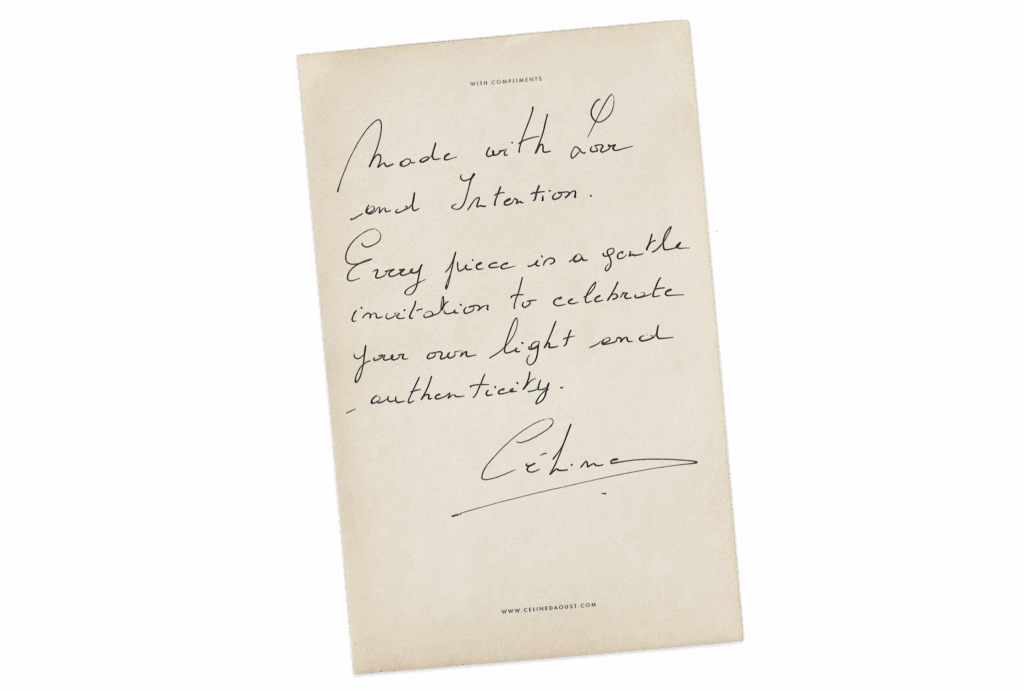 WITH COMPLIMENTS
Made with Love
and Intention.
Every piece is a gentle
invitation to celebrate
your own light and
authenticity.
Céline
WWW.CELINEDAOUST.COM